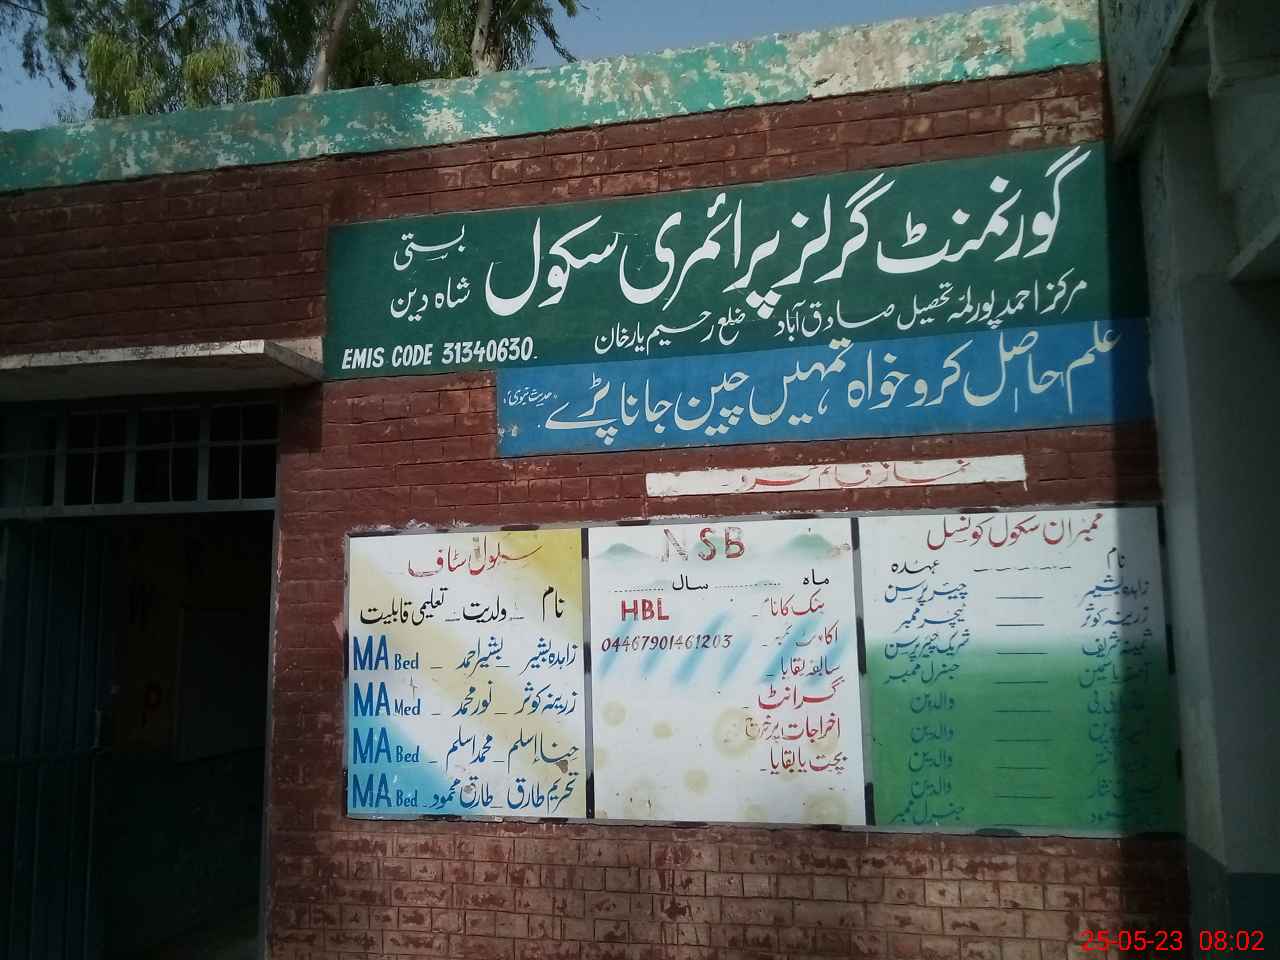 گورنمنٹ گرلز پرائمری سکول بستی شاہ دین
مرکز احمد پور لمہ تحصیل صادق آباد ضلع رحیم یار خان
EMIS CODE 31340630.
علم حاصل کرو خواہ تمہیں چین جانا پڑے (حدیث نبویؐ)
نماز قائم کرو
سکول سٹاف
نام _ ولدیت _ تعلیمی قابلیت
زاہدہ بشیر _ بشیر احمد _ MA Bed
زرینہ کوثر _ نور محمد _ MA Med
حنا اسلم _ محمد اسلم _ MA Bed
تحریم طارق _ طارق محمود _ MA Bed
NSB
ماہ ............ سال ............
بنک کا نام _ HBL
اکاونٹ نمبر _ 04467901461203
سابقہ بقایا _
گرانٹ _
اخراجات پر خرچ
بچت یا بقایا _
ممبران سکول کونسل
نام _ _ _ _ _ _ عہدہ
زاہدہ بشیر ____ چیئر پرسن
زرینہ کوثر ____ ٹیچر ممبر
ثمینہ شریف ____ شریک چیئر پرسن
یاسمین ____ جنرل ممبر
بی بی ____ والدین
____ والدین
____ والدین
____ والدین
____ جنرل ممبر
25-05-23 08:02